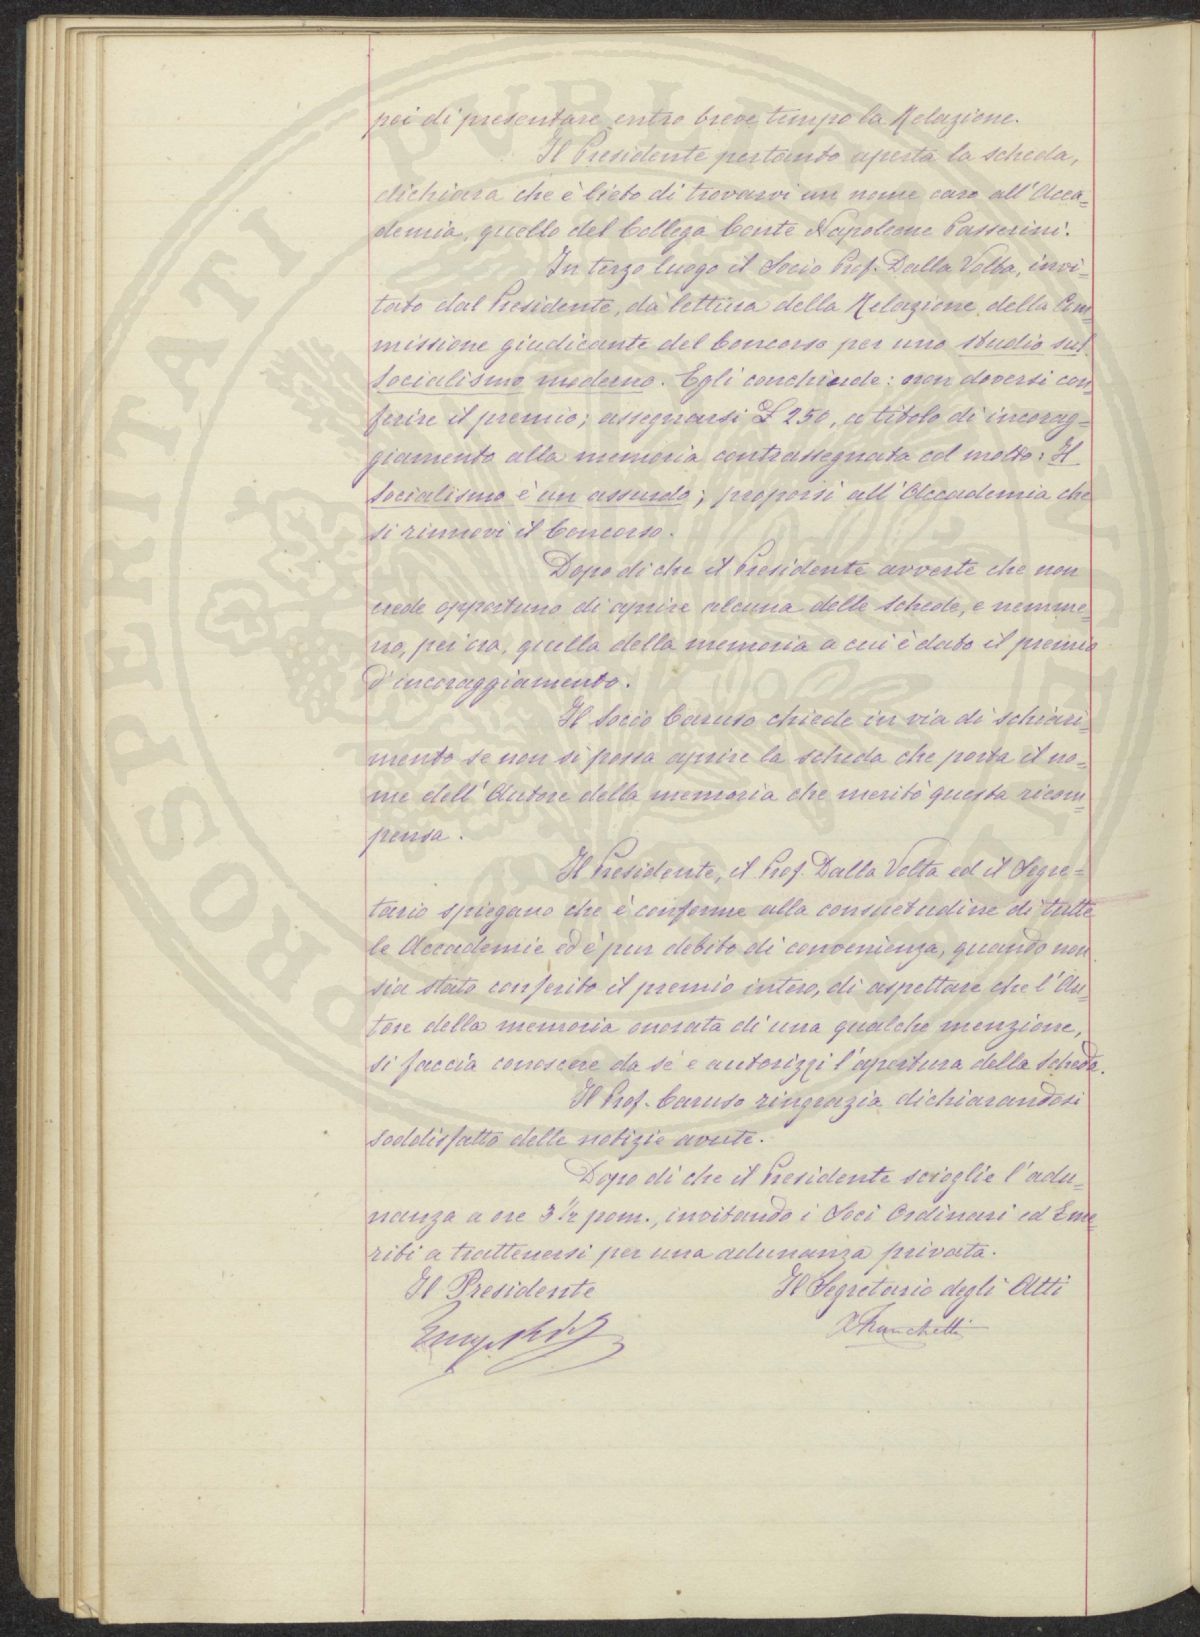 poi di presentare entro breve tempo la Relazione.
Il Presidente pertanto aperta la scheda,
dichiara che è lieto di trovarvi un nome caro all'Acca=
demia, quello del Collega Conte Napoleone Passerini.
In terzo luogo il Socio Prof. Dalla Volta, invi=
tato dal Presidente, dà lettura della Relazione della Com=
missione giudicante del Concorso per uno studio sul
Socialismo moderno. Egli conchiude: non doversi con=
ferire il premio; assegnarsi £ 250, a titolo di incorag=
giamento alla memoria contrassegnata col motto: Il
Socialismo è un assurdo; proporsi all'Accademia che
si rinnovi il Concorso.
Dopo di che il Presidente avverte che non
crede opportuno di aprire alcuna delle schede, e nemme=
no, per ora, quella della memoria a cui è dato il premio
d'incoraggiamento.
Il Socio Caruso chiede in via di schiari=
mento se non si possa aprire la scheda che porta il no=
me dell'Autore della memoria che meritò questa ricom=
pensa.
Il Presidente, il Prof. Dalla Volta ed il Segre=
tario spiegano che è conforme alla consuetudine di tutte
le Accademie ed è pur debito di convenienza, quando non
sia stato conferito il premio intero, di aspettare che l'Au=
tore della memoria onorata di una qualche menzione,
si faccia conoscere da sé e autorizzi l'apertura della Scheda.
Il Prof. Caruso ringrazia dichiarandosi
soddisfatto delle notizie avute.
Dopo di che il Presidente scioglie l'adu=
nanza a ore 3 1/2 pom., invitando i Soci Ordinari ed Eme=
riti a trattenersi per una adunanza privata.
Il Presidente Il Segretario degli Atti
Franchetti
PROSPERITATI PUBLICAE